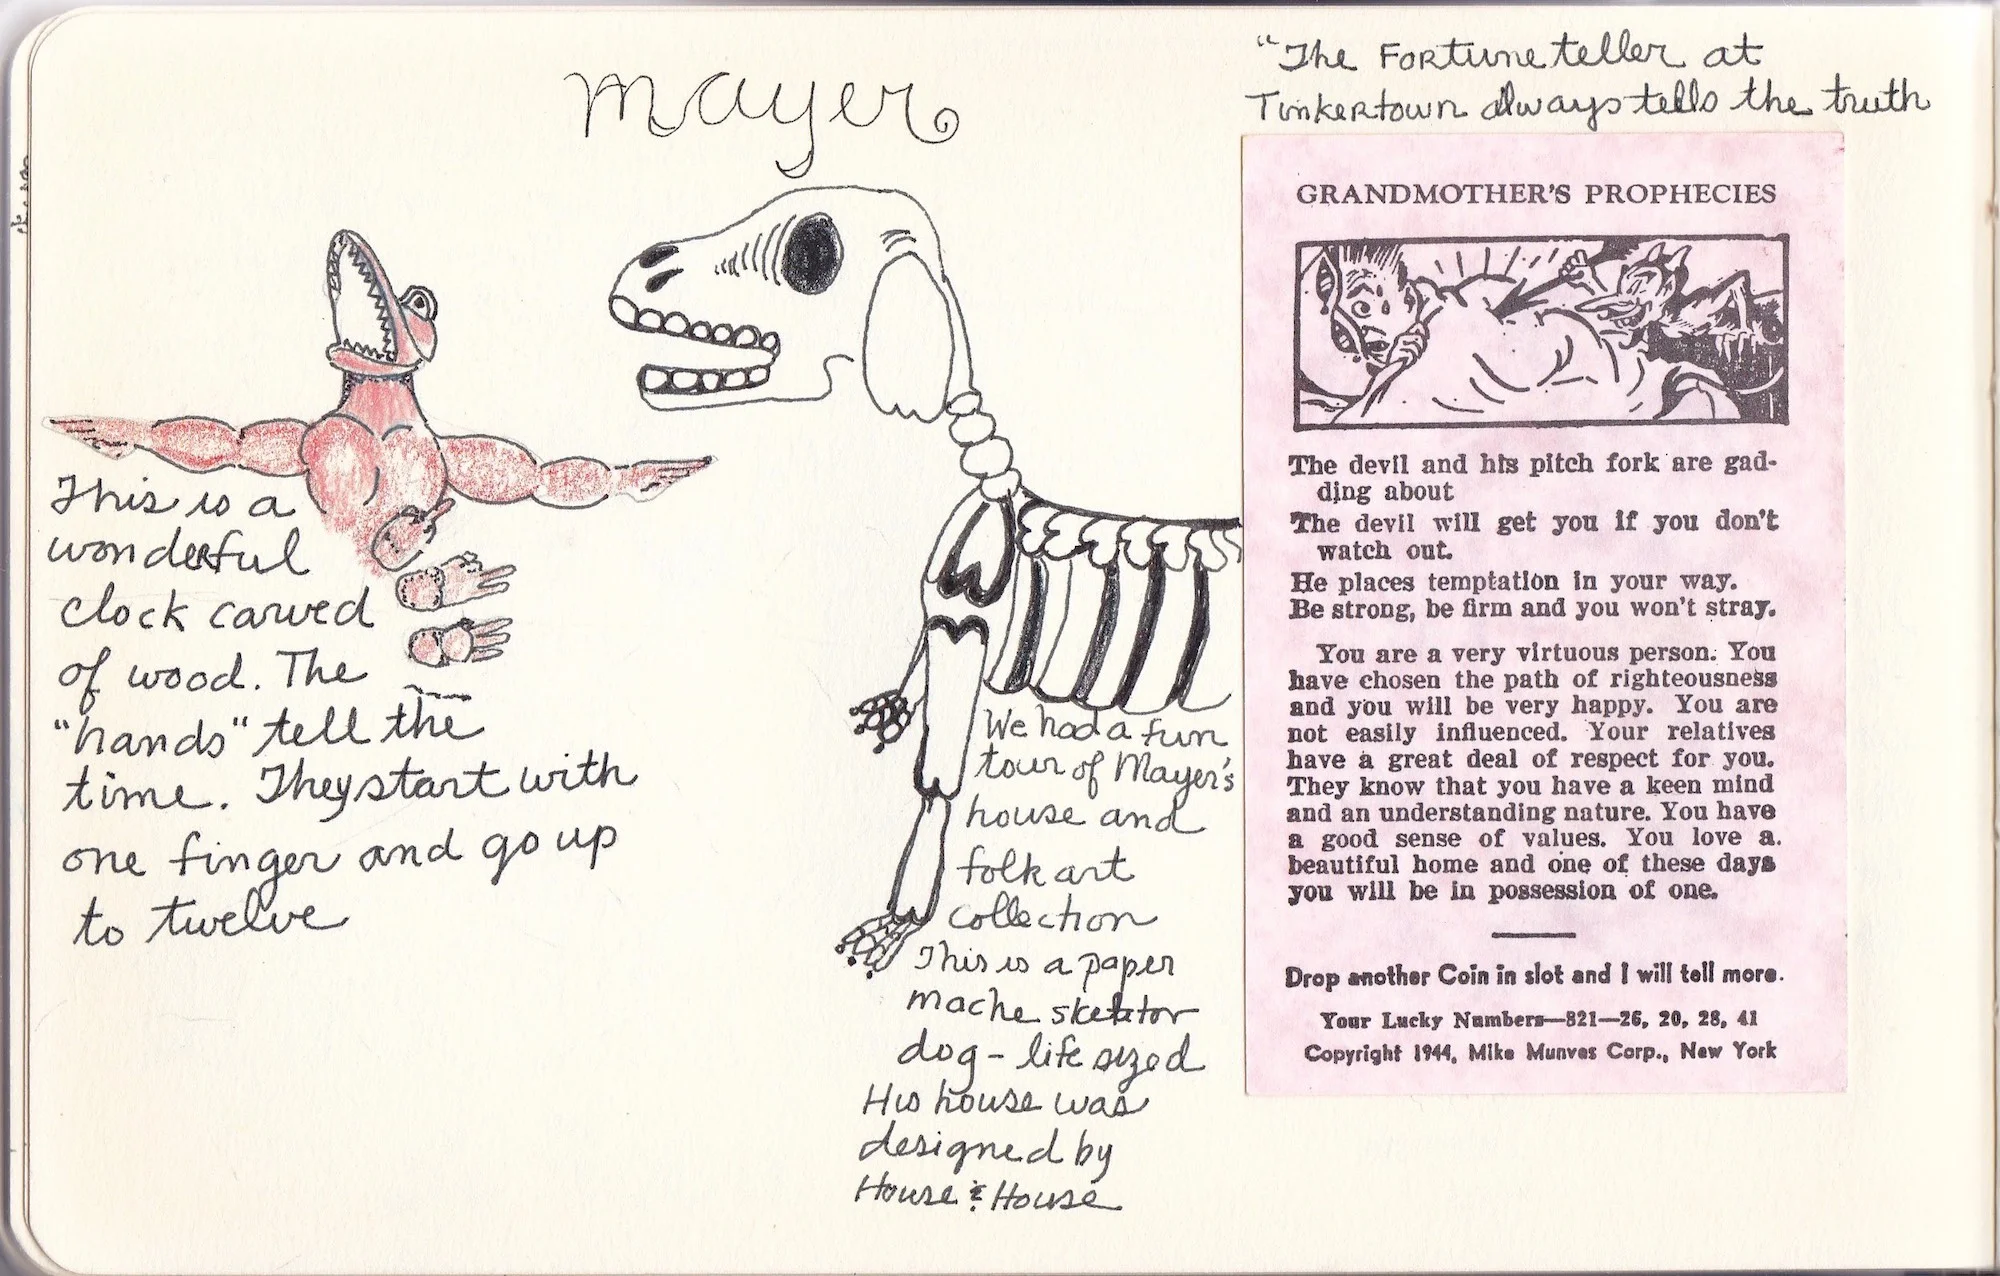 mayer
This is a
wonderful
clock carved
of wood. The
"hands" tell the
time. They start with
one finger and go up
to twelve
We had a fun
tour of Mayer's
house and
folk art
collection
This is a paper
mache skeletor
dog - life sized
His house was
designed by
House & House
"The Fortune teller at
Tinkertown always tells the truth
GRANDMOTHER'S PROPHECIES
The devil and his pitch fork are gad-
ding about
The devil will get you if you don't
watch out.
He places temptation in your way.
Be strong, be firm and you won't stray.
You are a very virtuous person. You
have chosen the path of righteousness
and you will be very happy. You are
not easily influenced. Your relatives
have a great deal of respect for you.
They know that you have a keen mind
and an understanding nature. You have
a good sense of values. You love a
beautiful home and one of these days
you will be in possession of one.
Drop another Coin in slot and I will tell more.
Your Lucky Numbers—821—26, 20, 28, 41
Copyright 1944, Mike Munves Corp., New York